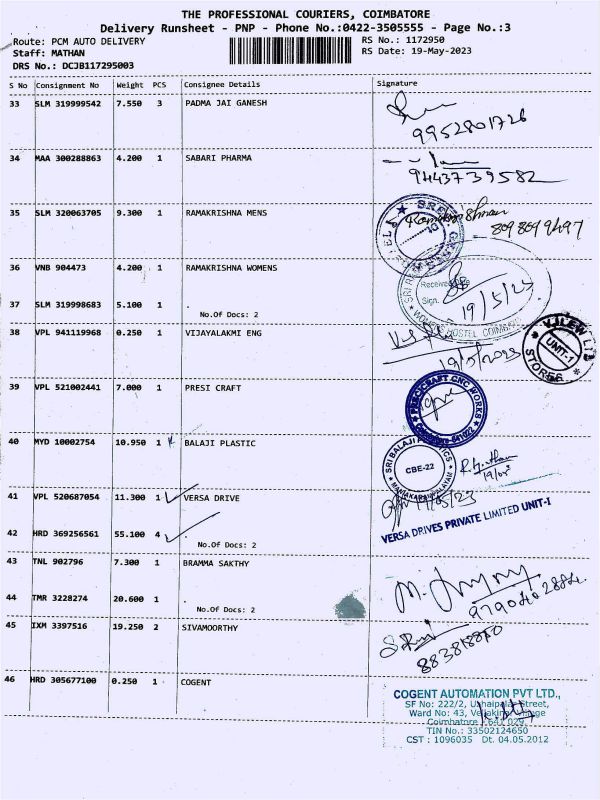 THE PROFESSIONAL COURIERS, COIMBATORE
Delivery Runsheet - PNP - Phone No.:0422-3505555 - Page No.:3
Route: PCM AUTO DELIVERY
RS No.: 1172950
Staff: MATHAN
RS Date: 19-May-2023
DRS No.: DCJB117295003
S No Consignment No Weight PCS Consignee Details Signature
33 SLM 319999542 7.550 3 PADMA JAI GANESH
9952801726
34 MAA 300288863 4.200 1 SABARI PHARMA
9443739582
35 SLM 320063705 9.300 1 RAMAKRISHNA MENS
Ramakrishnan
8098099497
36 VNB 904473 4.200 1 RAMAKRISHNA WOMENS
Received
Sign.
19/5/23
WOMENS HOSTEL COIMBATORE
37 SLM 319998683 5.100 1
No.Of Docs: 2
38 VPL 941119968 0.250 1 VIJAYALAKMI ENG
19/5/2023
UNIT-1
STORES
39 VPL 521002441 7.000 1 PRESI CRAFT
PRECICRAFT CNC WORKS
40 MYD 10002754 10.950 1 BALAJI PLASTIC
SRI BALAJI PLASTICS
CBE-22
41 VPL 520687054 11.300 1 VERSA DRIVE
19/05/23
VERSA DRIVES PRIVATE LIMITED UNIT-I
42 HRD 369256561 55.100 4
No.Of Docs: 2
43 TNL 902796 7.300 1 BRAMMA SAKTHY
44 TMR 3228274 20.600 1
No.Of Docs: 2
45 IXM 3397516 19.250 2 SIVAMOORTHY
46 HRD 305677100 0.250 1 COGENT
COGENT AUTOMATION PVT LTD.,
SF No: 222/2, Street,
Ward No: 43,
Coimbatore - 641 029.
TIN No.: 33502124650
CST : 1096035 Dt. 04.05.2012